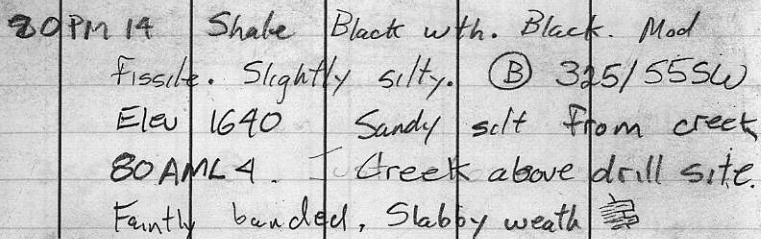 80PM 14 Shale Black wth. Black. Mod
fissile. Slightly silty. Ⓑ 325/55SW
Elev 1640 Sandy silt from creek
80AML4. Creek above drill site.
Faintly banded, Slabby weath